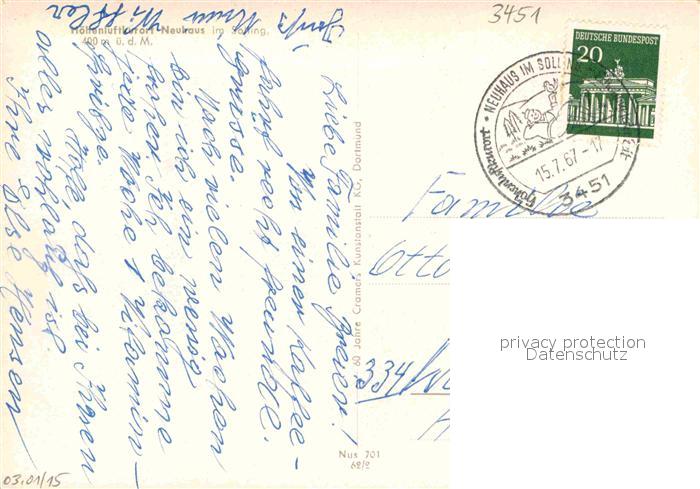 3451
Höhenluftkurort Neuhaus im Solling,
400 m ü. d. M.
DEUTSCHE BUNDESPOST
20
NEUHAUS IM SOLLING
15.7.67-17
Höhenluftkurort
3451
Familie
Otto
334/
privacy protection
Datenschutz
60 Jahre Cramers Kunstanstalt KG, Dortmund
Nus 701
62/2
Liebe Familie
Von einer Kaffee-
fahrt recht freundl.
Grüsse.
Nach vielen Wochen
bin ich ein wenig
Ich bekomme
jede Woche 1 Vitamin-
spritze.
Hoffe daß bei Ihnen
alles wohlauf ist.
Ihre Ilse Hensen
03.01/15